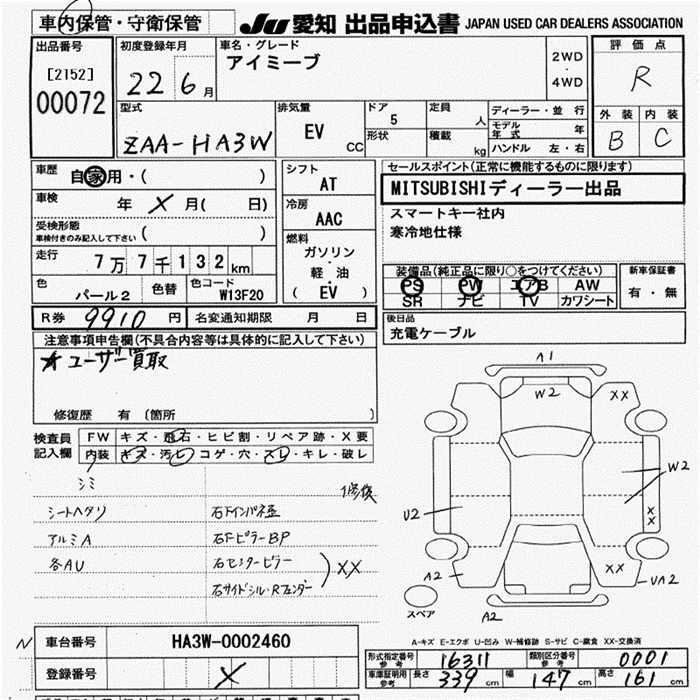 車内保管・守衛保管 JU 愛知 出品申込書 JAPAN USED CAR DEALERS ASSOCIATION
出品番号 初度登録年月 車名・グレード 評価点
[2152] 22 6月 アイミーブ 2WD・4WD R
00072
型式 排気量 ドア 定員 ディーラー・並行 外装 内装
ZAA-HA3W EV CC 5 人 モデル年式 年 B C
形状 積載 kg ハンドル 左・右
車歴 自家用・( ) シフト セールスポイント(正常に機能するものに限ります)
AT MITSUBISHIディーラー出品
車検 年 X 月( 日) 冷房 スマートキー社内
AAC 寒冷地仕様
受検形態 ( )
車検付きのみ記入して下さい
燃料
走行 7万7千132km ガソリン・軽油 装備品(純正品に限り○をつけてください) 新車保証書
色 パール2 色替 色コード W13F20 ( EV ) PS PW エアB AW 有・無
SR ナビ TV カワシート
R券 9910円 名変通知期限 月 日 後日品
充電ケーブル
注意事項申告欄(不具合内容等は具体的に記入して下さい)
★ユーザー買取
修復歴 有 (箇所 )
A1
W2 XX
検査員 FW キズ・飛石・ヒビ割・リペア跡・X要
記入欄 内装 キズ・汚レ・コゲ・穴・スレ・キレ・破レ
シミ 修復
W2
シートヘタリ 右Fインパネ歪
XX
U2
アルミA 右FピラーBP
各AU 右センターピラー
XX
右サイドシル・Rフェンダー
XX
A2 UA2
スペア A2
A-キズ E-エクボ U-凹み W-補修跡 S-サビ C-腐食 XX-交換済
車台番号 HA3W-0002460
登録番号 X
形式指定番号 参考 16311 類別区分番号 参考 0001
車庫証明用 参考 長さ 339cm 幅 147cm 高さ 161cm